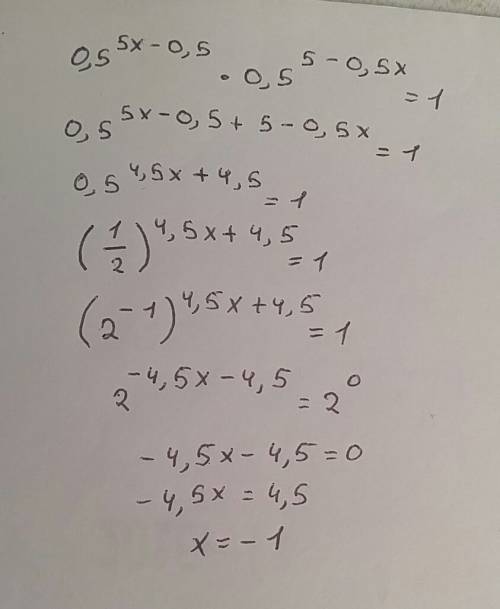 0,5^(5x-0,5) · 0,5^(5-0,5x) = 1
0,5^(5x-0,5+5-0,5x) = 1
0,5^(4,5x+4,5) = 1
(1/2)^(4,5x+4,5) = 1
(2^(-1))^(4,5x+4,5) = 1
2^(-4,5x-4,5) = 2^0
-4,5x-4,5=0
-4,5x=4,5
x=-1